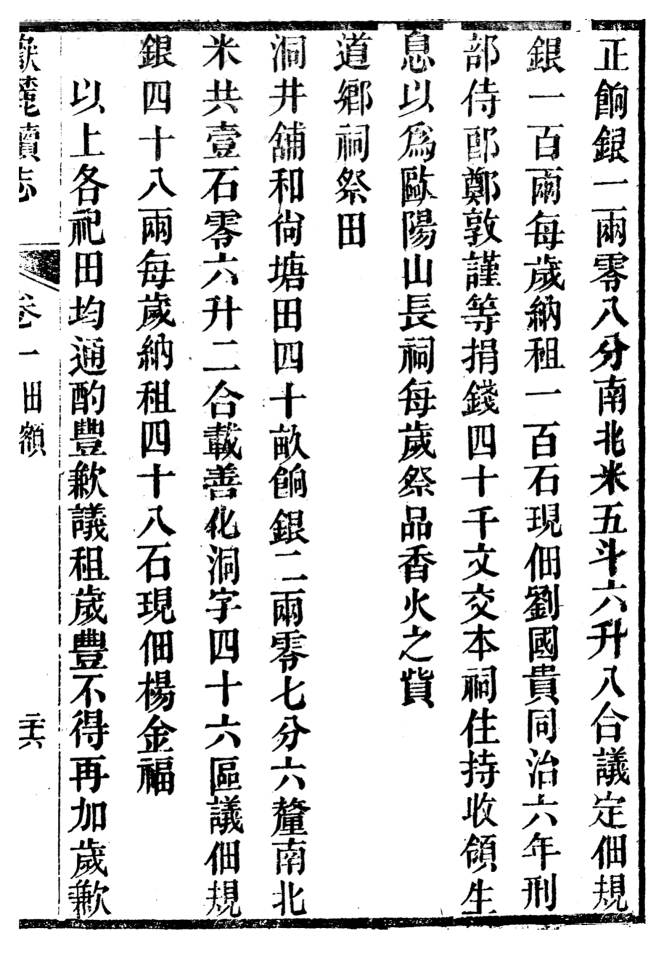 正餉銀一兩零八分南北米五斗六升八合議定佃規
銀一百兩每歲納租一百石現佃劉國貴同治六年刑
部侍郎鄭敦謹等捐錢四十千文交本祠住持收領生
息以爲歐陽山長祠每歲祭品香火之貲
道鄉祠祭田
洞井舖和尙塘田四十畝餉銀二兩零七分六釐南北
米共壹石零六升二合載善化洞字四十六區議佃規
銀四十八兩每歲納租四十八石現佃楊金福
以上各祀田均通酌豐歉議租歲豐不得再加歲歉
嶽麓續志 卷一田額 二六